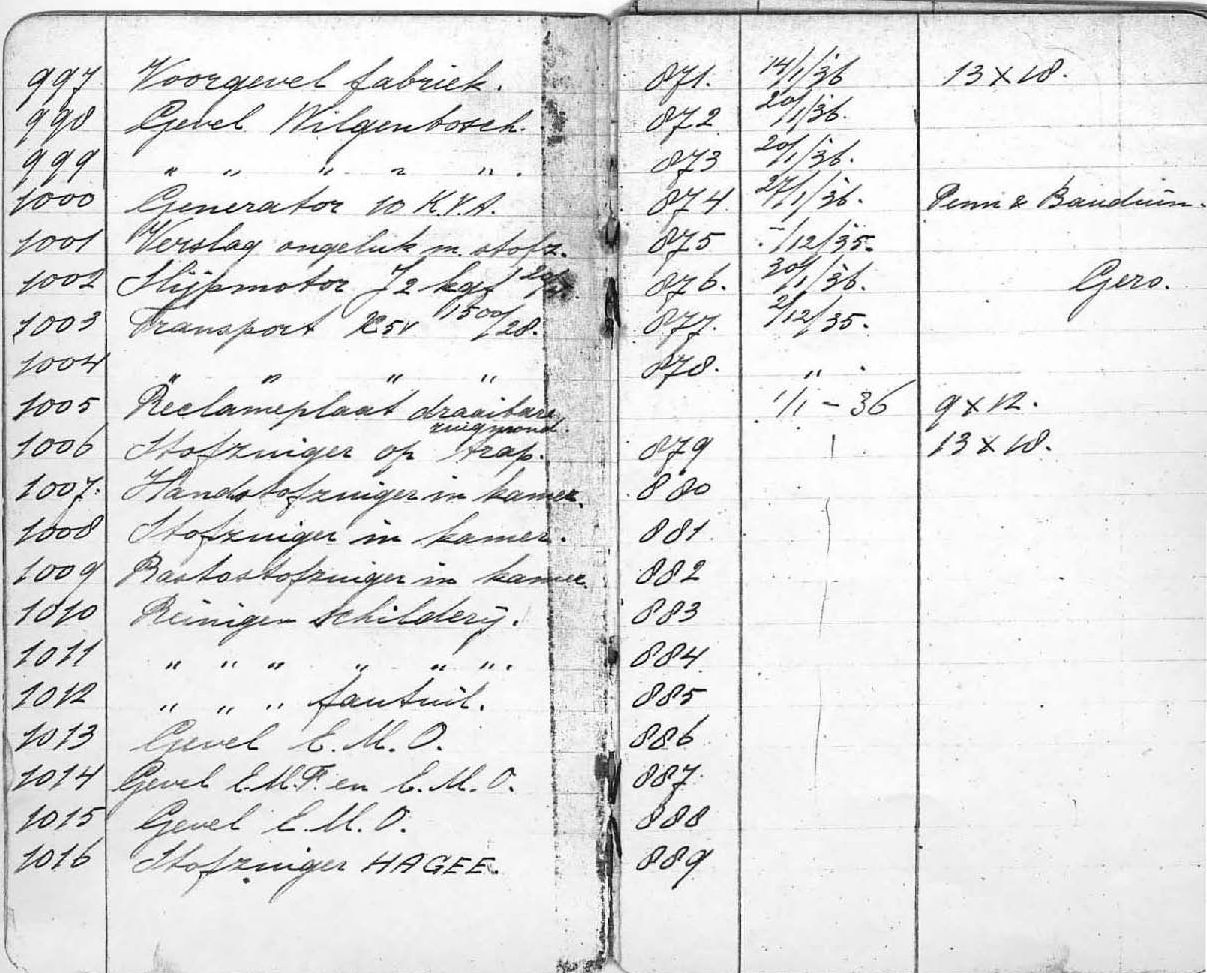 997 Voorgevel fabriek. 871. 14/1/36 13 x 18.
998 Gevel Wilgenbosch. 872 20/1/36.
999 " " " " ". 873 20/1/36.
1000 Generator 10 K.V.A. 874 27/1/36. Penn & Bauduin.
1001 Verslag ongeluk m. stofz. 875 -/12/35.
1002 Slijpmotor J2 876. 30/1/36. Gero.
1003 Transport R5V 1500/28. 877. 2/12/35.
1004 " " " " 878. "
1005 Reclameplaat draaibare zuigmond 1/1-36 9 x 12.
1006 Stofzuiger op trap. 879 13 x 18.
1007. Handstofzuiger in kamer. 880
1008 Stofzuiger in kamer. 881
1009 Bastostofzuiger in kamer 882
1010 Reinigen schilderij. 883
1011 " " " " " ". 884
1012 " " " fauteuil. 885
1013 Gevel E.M.O. 886
1014 Gevel E.M.F. en E.M.O. 887.
1015 Gevel E.M.O. 888
1016 Stofzuiger HAGEE. 889